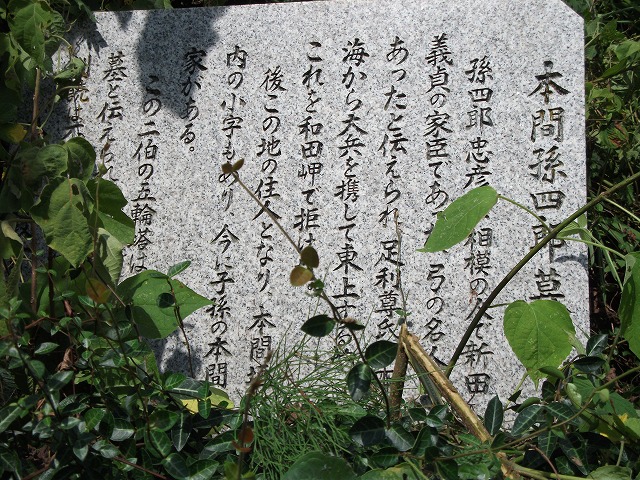 本間孫四郎墓
孫四郎忠彦 相模の人で新田
義貞の家臣であ 弓の名人
あったと伝えられ 足利尊氏 西
海から大兵を携して東上する
これを和田岬で拒
後この地の住人となり、本間
内の小字もあり、今に子孫の本間
家がある。
この二伯の五輪塔は
墓と伝えら